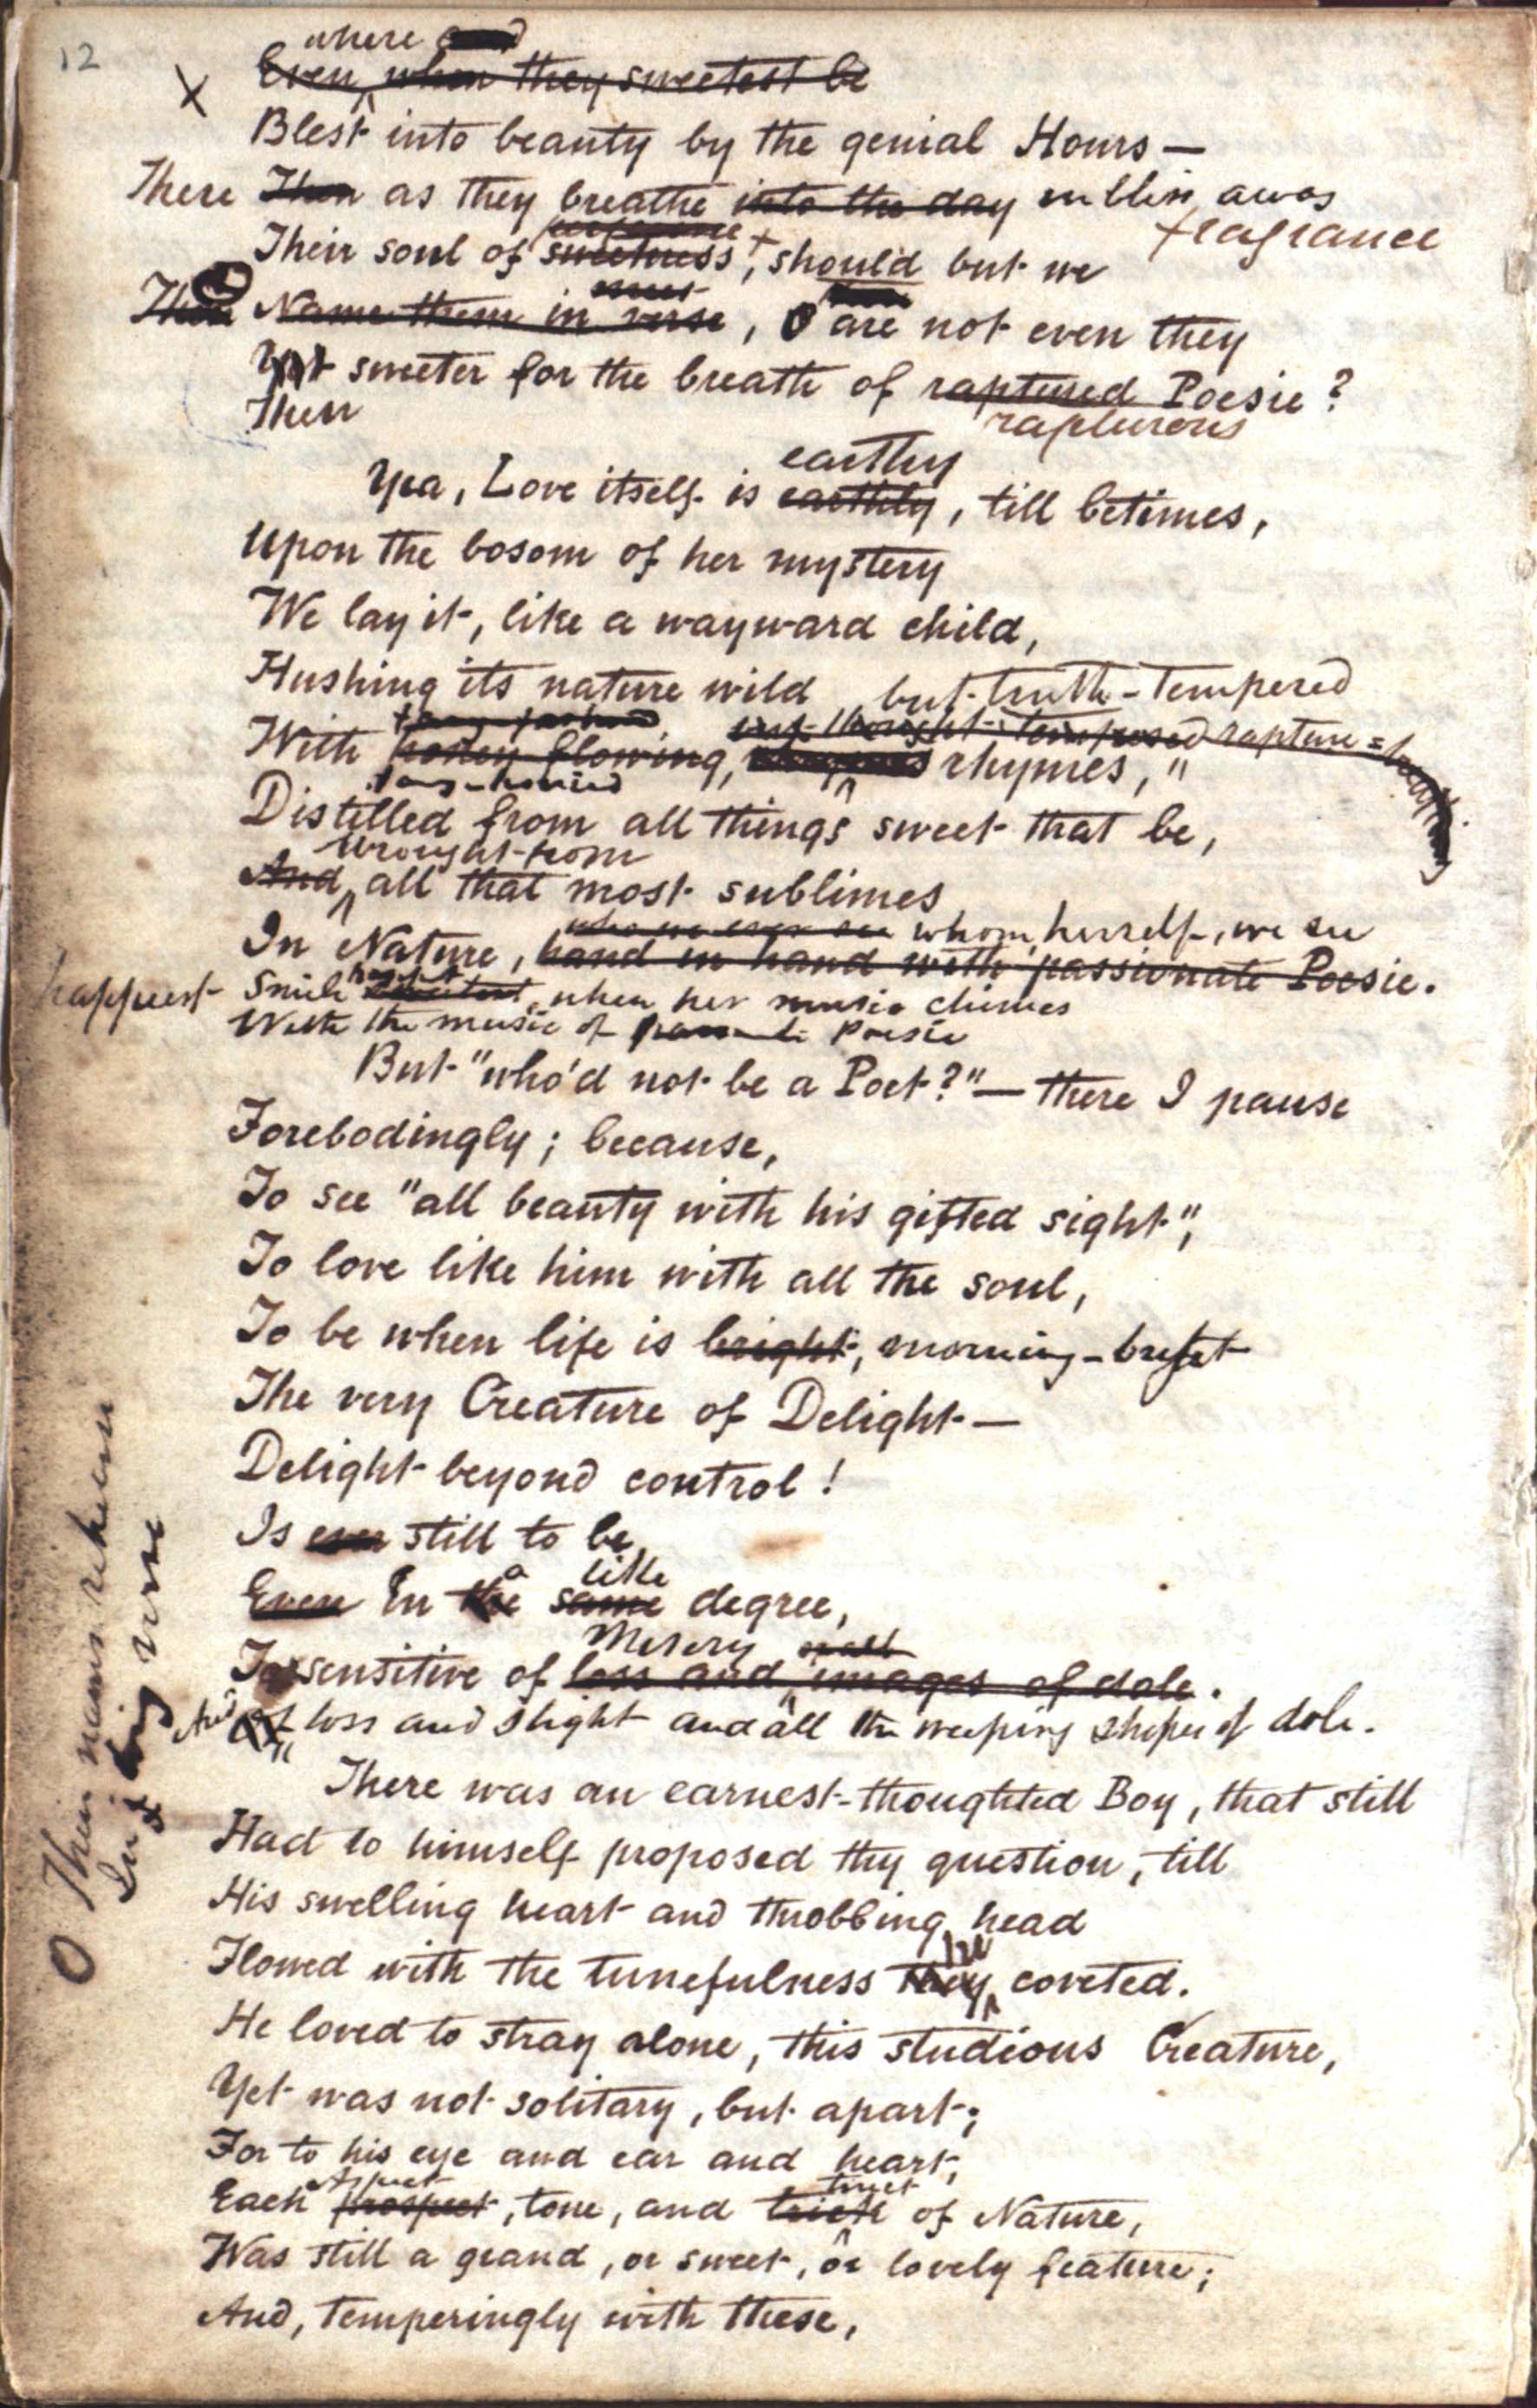 12
where
X Even when they sweetest be
Blest into beauty by the genial Hours —
There Then as they breathe into the day in bliss away
Their soul of sweetness, should but we
perfume
fragrance
Name them in verse, O are not even they
Yet sweeter for the breath of raptured Poesie?
Then
rapturous
earthy
Yea, Love itself is earthly, till betimes,
Upon the bosom of her mystery
We lay it, like a wayward child,
Hushing its nature wild
but truth-tempered
but thought-tempered rapture=breathing
With honey flowing, rhymes,
long-honied
Distilled from all things sweet that be,
wrought from
And all that most sublimes
who we ever see whom, herself, we see
In Nature, hand in hand with passionate Poesie.
happiest Smile when her music chimes
With the music of Poesie
But "who'd not be a Poet?" — there I pause
Forebodingly; because,
To see "all beauty with his gifted sight",
To love like him with all the soul,
To be when life is bright, morning-bright
The very Creature of Delight —
Delight beyond control!
Is even still to be,
a like
Even In the same degree,
Misery
Too sensitive of loss and images of dole.
And of loss and slight and all the weeping shapes of dole.
There was an earnest-thoughted Boy, that still
Had to himself proposed thy question, till
His swelling heart and throbbing head
he
Flowed with the tunefulness they coveted.
He loved to stray alone, this studious Creature,
Yet was not solitary, but apart;
For to his eye and ear and heart,
Aspect
Each prospect, tone, and trick of Nature,
Was still a grand, or sweet, or lovely feature;
And, temperingly with these,
O Their names
In verse